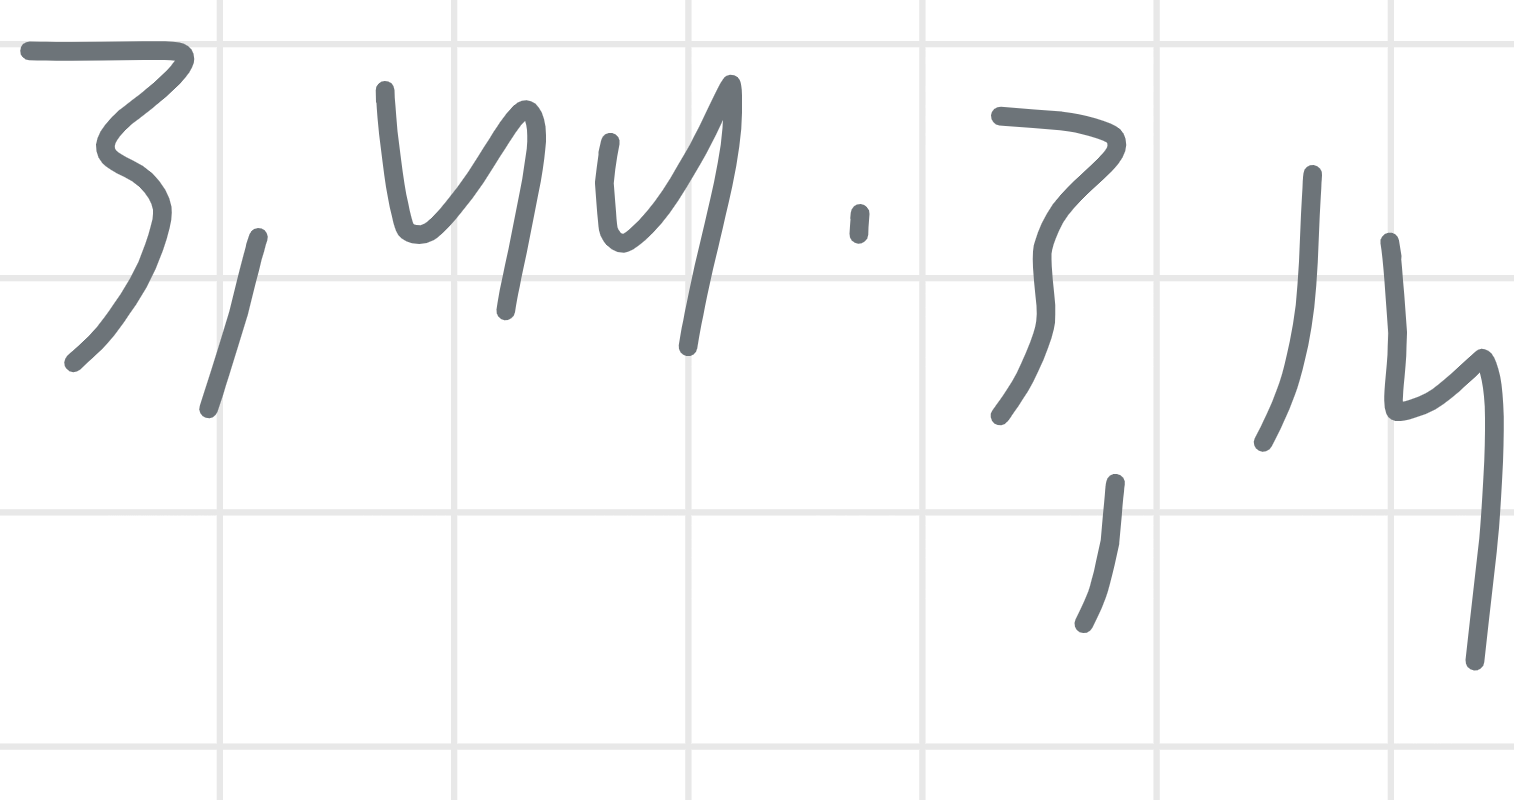 3,44 · 3,14